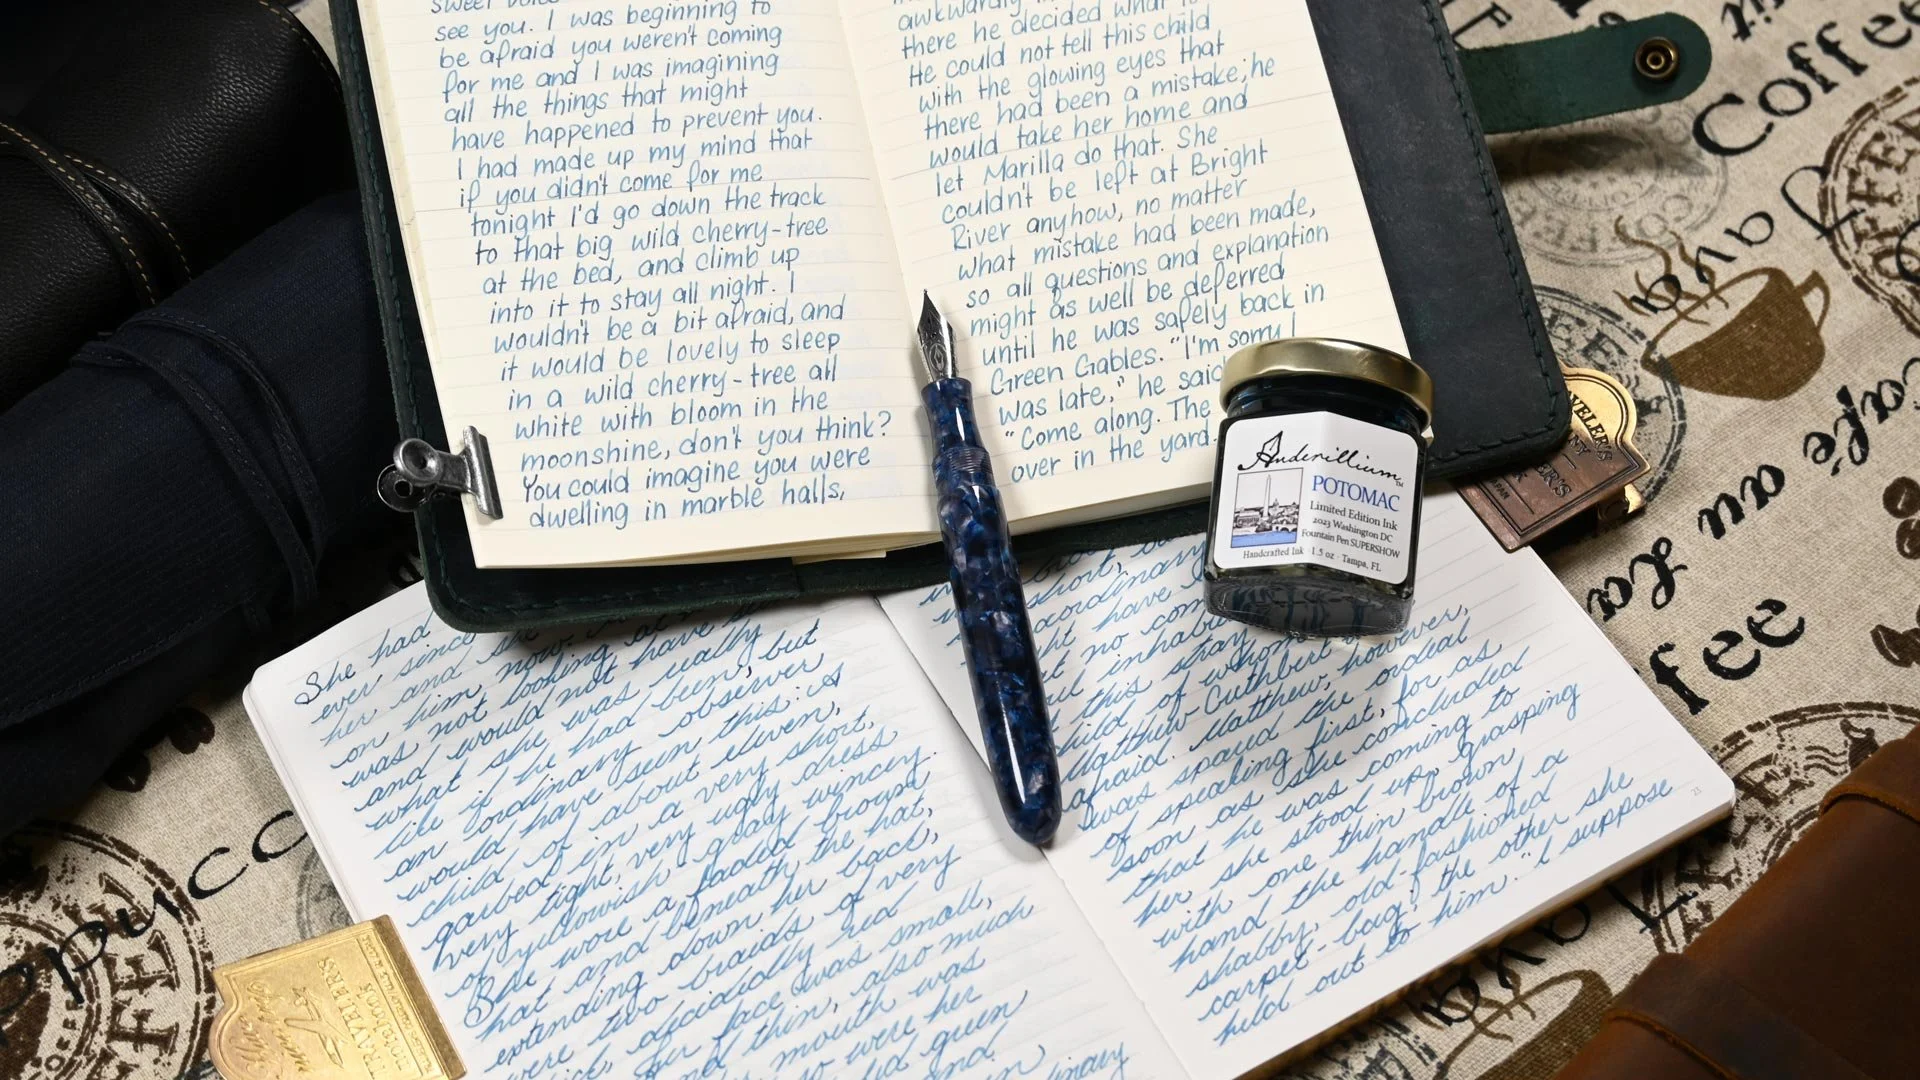 see you. I was beginning to
be afraid you weren't coming
for me and I was imagining
all the things that might
have happened to prevent you.
I had made up my mind that
if you didn't come for me
tonight I'd go down the track
to that big wild cherry-tree
at the bed, and climb up
into it to stay all night. I
wouldn't be a bit afraid, and
it would be lovely to sleep
in a wild cherry-tree all
white with bloom in the
moonshine, don't you think?
You could imagine you were
dwelling in marble halls,
awkwardly
there he decided what to
He could not tell this child
with the glowing eyes that
there had been a mistake; he
would take her home and
let Marilla do that. She
couldn't be left at Bright
River anyhow, no matter
what mistake had been made,
so all questions and explanation
might as well be deferred
until he was safely back in
Green Gables. "I'm sorry I
was late," he said
"Come along. The
over in the yard.
Anderillium
POTOMAC
Limited Edition Ink
2023 Washington DC
Fountain Pen SUPERSHOW
Handcrafted Ink 1.5 oz Tampa, FL
She had
ever since she
her and
on him, now.
was not looking at
and would not have
what she was really
like if he had been, but
an ordinary observer
would have seen this: A
child of about eleven,
garbed in a very short,
very tight, very ugly dress
of yellowish gray wincey.
She wore a faded brown
hat and beneath the hat,
extending down her back,
were two braids of very
thick, decidedly red
Her face was small,
and thin, also much
mouth was
so were her
green
and
ordinary
short,
ordinary
might have
no com
inhabit
this stray
child of whom
Matthew Cuthbert
afraid. Matthew, however,
was spared the ordeal
of speaking first, for as
soon as she concluded
that he was coming to
her she stood up, grasping
with one thin brown
hand the handle of a
shabby, old-fashioned
carpet-bag; the other she
held out to him. "I suppose
23
TRAVELER'S
notebook
Coffee
Java
Café au
Coffee
Java
COFFEE